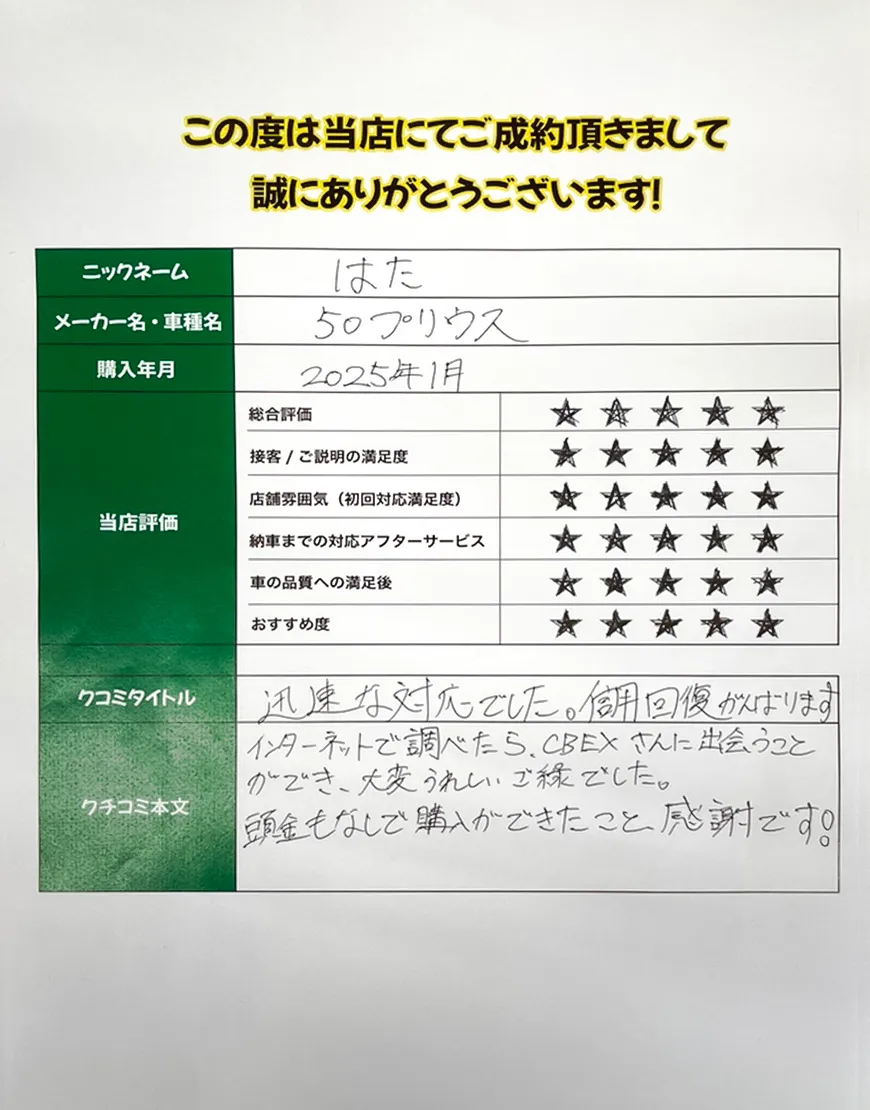 この度は当店にてご成約頂きまして
誠にありがとうございます!
ニックネーム はた
メーカー名・車種名 50プリウス
購入年月 2025年1月
当店評価
総合評価 ★★★★★
接客 / ご説明の満足度 ★★★★★
店舗雰囲気（初回対応満足度） ★★★★★
納車までの対応アフターサービス ★★★★★
車の品質への満足後 ★★★★★
おすすめ度 ★★★★★
クコミタイトル 迅速な対応でした。信用回復がんばります
クチコミ本文
インターネットで調べたら、CBEXさんに出会うこと
ができ、大変うれしいご縁でした。
頭金もなしで購入ができたこと、感謝です!